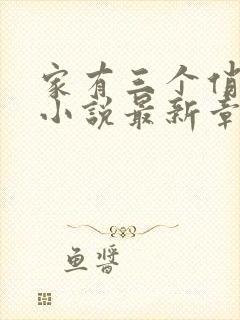 家有三个俏
小说最新章
鱼酱